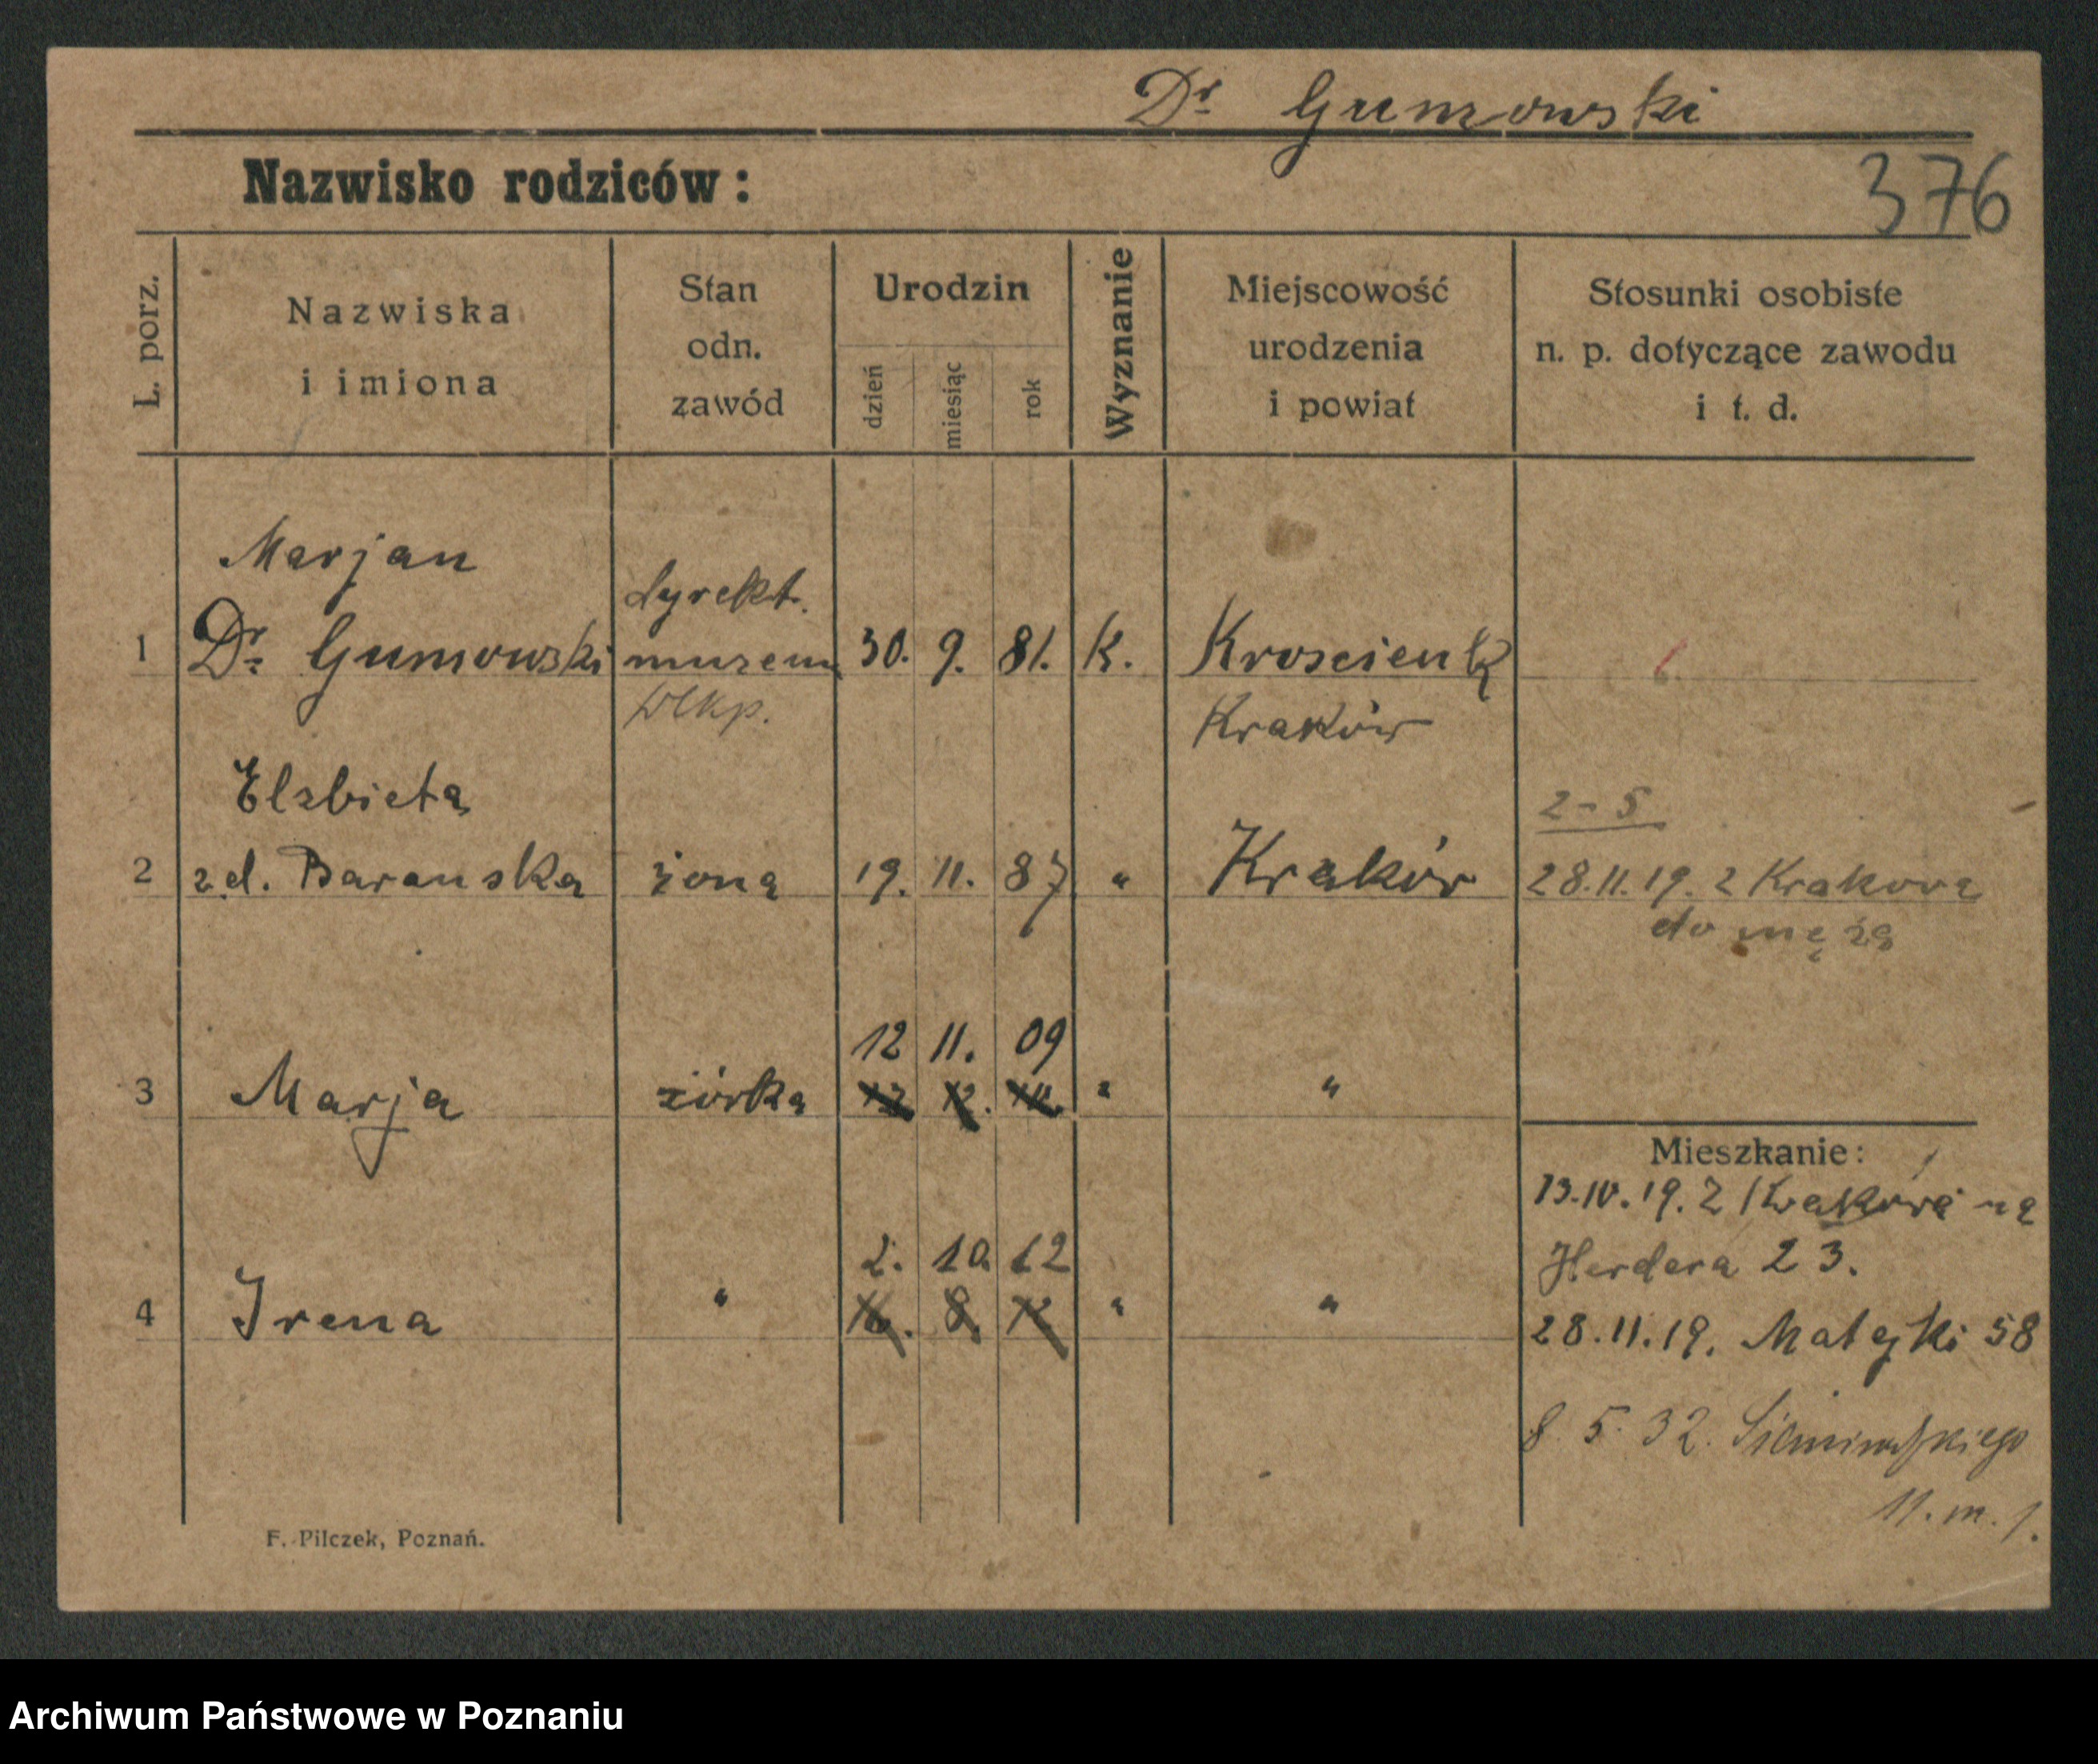 Dr Gumowski
Nazwisko rodziców:
376
L. porz.
Nazwiska
i imiona
Stan
odn.
zawód
Urodzin
dzień
miesiąc
rok
Wyznanie
Miejscowość
urodzenia
i powiat
Stosunki osobiste
n. p. dotyczące zawodu
i t. d.
Marjan
dyrekt.
1 Dr Gumowski muzeum 30. 9. 81. K. Kroscienk
Wlkp. Kraków
Elzbieta
2 - 5
2 z d. Baranska żona 19. 11. 87 " Kraków 28.11.19. z Krakowa
do męża
12 11. 09
3 Marja córka " "
Mieszkanie:
13.IV.19. z Krakowa na
2. 10 12
Herdera 23.
4 Irena " 16. 8. 12 " "
28.11.19. Matejki 58
8. 5. 32. Siemiradzkiego
11. m. 1.
F. Pilczek, Poznań.
Archiwum Państwowe w Poznaniu